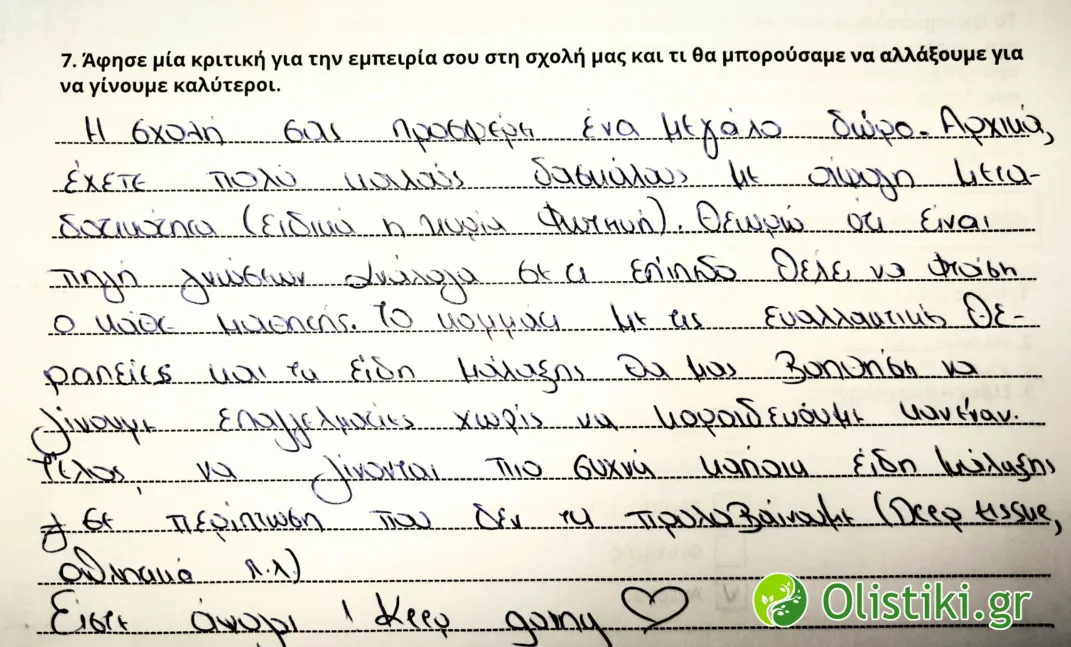 7. Άφησε μία κριτική για την εμπειρία σου στη σχολή μας και τι θα μπορούσαμε να αλλάξουμε για
να γίνουμε καλύτεροι.
Η σχολή σας προσφέρει ένα μεγάλο δώρο. Αρχικά,
έχετε πολύ καλούς δασκάλους με σίφαλη μετα-
δοτικότητα (ειδικά η κυρία Φωτεινή). Θεωρώ ότι είναι
πηγή γνώσεων ανάλογα σε τι επίπεδο θέλει να φτάσει
ο κάθε μαθητής. Το κομμάτι με τις εναλλακτικές θε-
ραπείες και τα είδη μάλαξης θα μας βοηθήσει να
γίνουμε επαγγελματίες χωρίς να κοροιδεύουμε κανέναν.
Τέλος, να γίνονται πιο συχνά κάποια είδη μάλαξης
σε περίπτωση που δεν τα προλαβαίνουμε (Deep tissue,
αθλητικό κ.λ)
Είστε άψογοι ! Keep going
Olistiki.gr